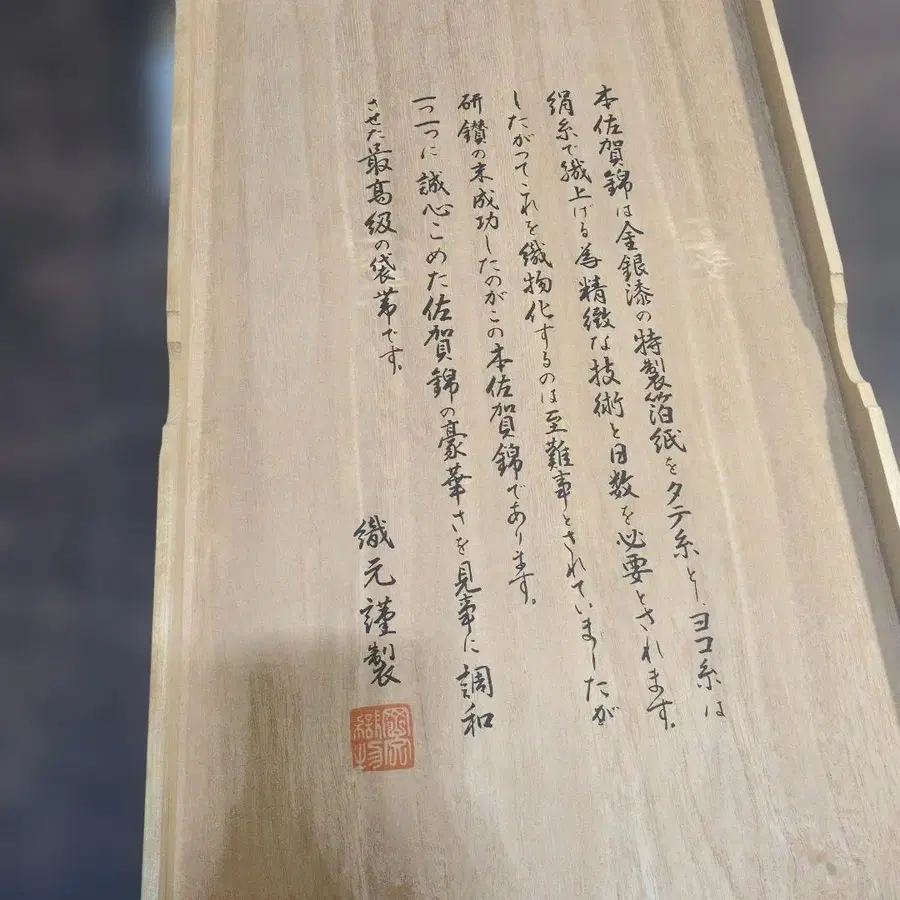 本佐賀錦は金銀漆の特製箔紙をタテ糸とし、ヨコ糸は
絹糸で織上げる為精緻な技術と日数を必要とされます。
したがってこれを織物化するのは至難事とされていましたが
研鑚の末成功したのがこの本佐賀錦であります。
一つ一つに誠心こめた佐賀錦の豪華さを見事に調和
させた最高級の袋帯です。
織元謹製